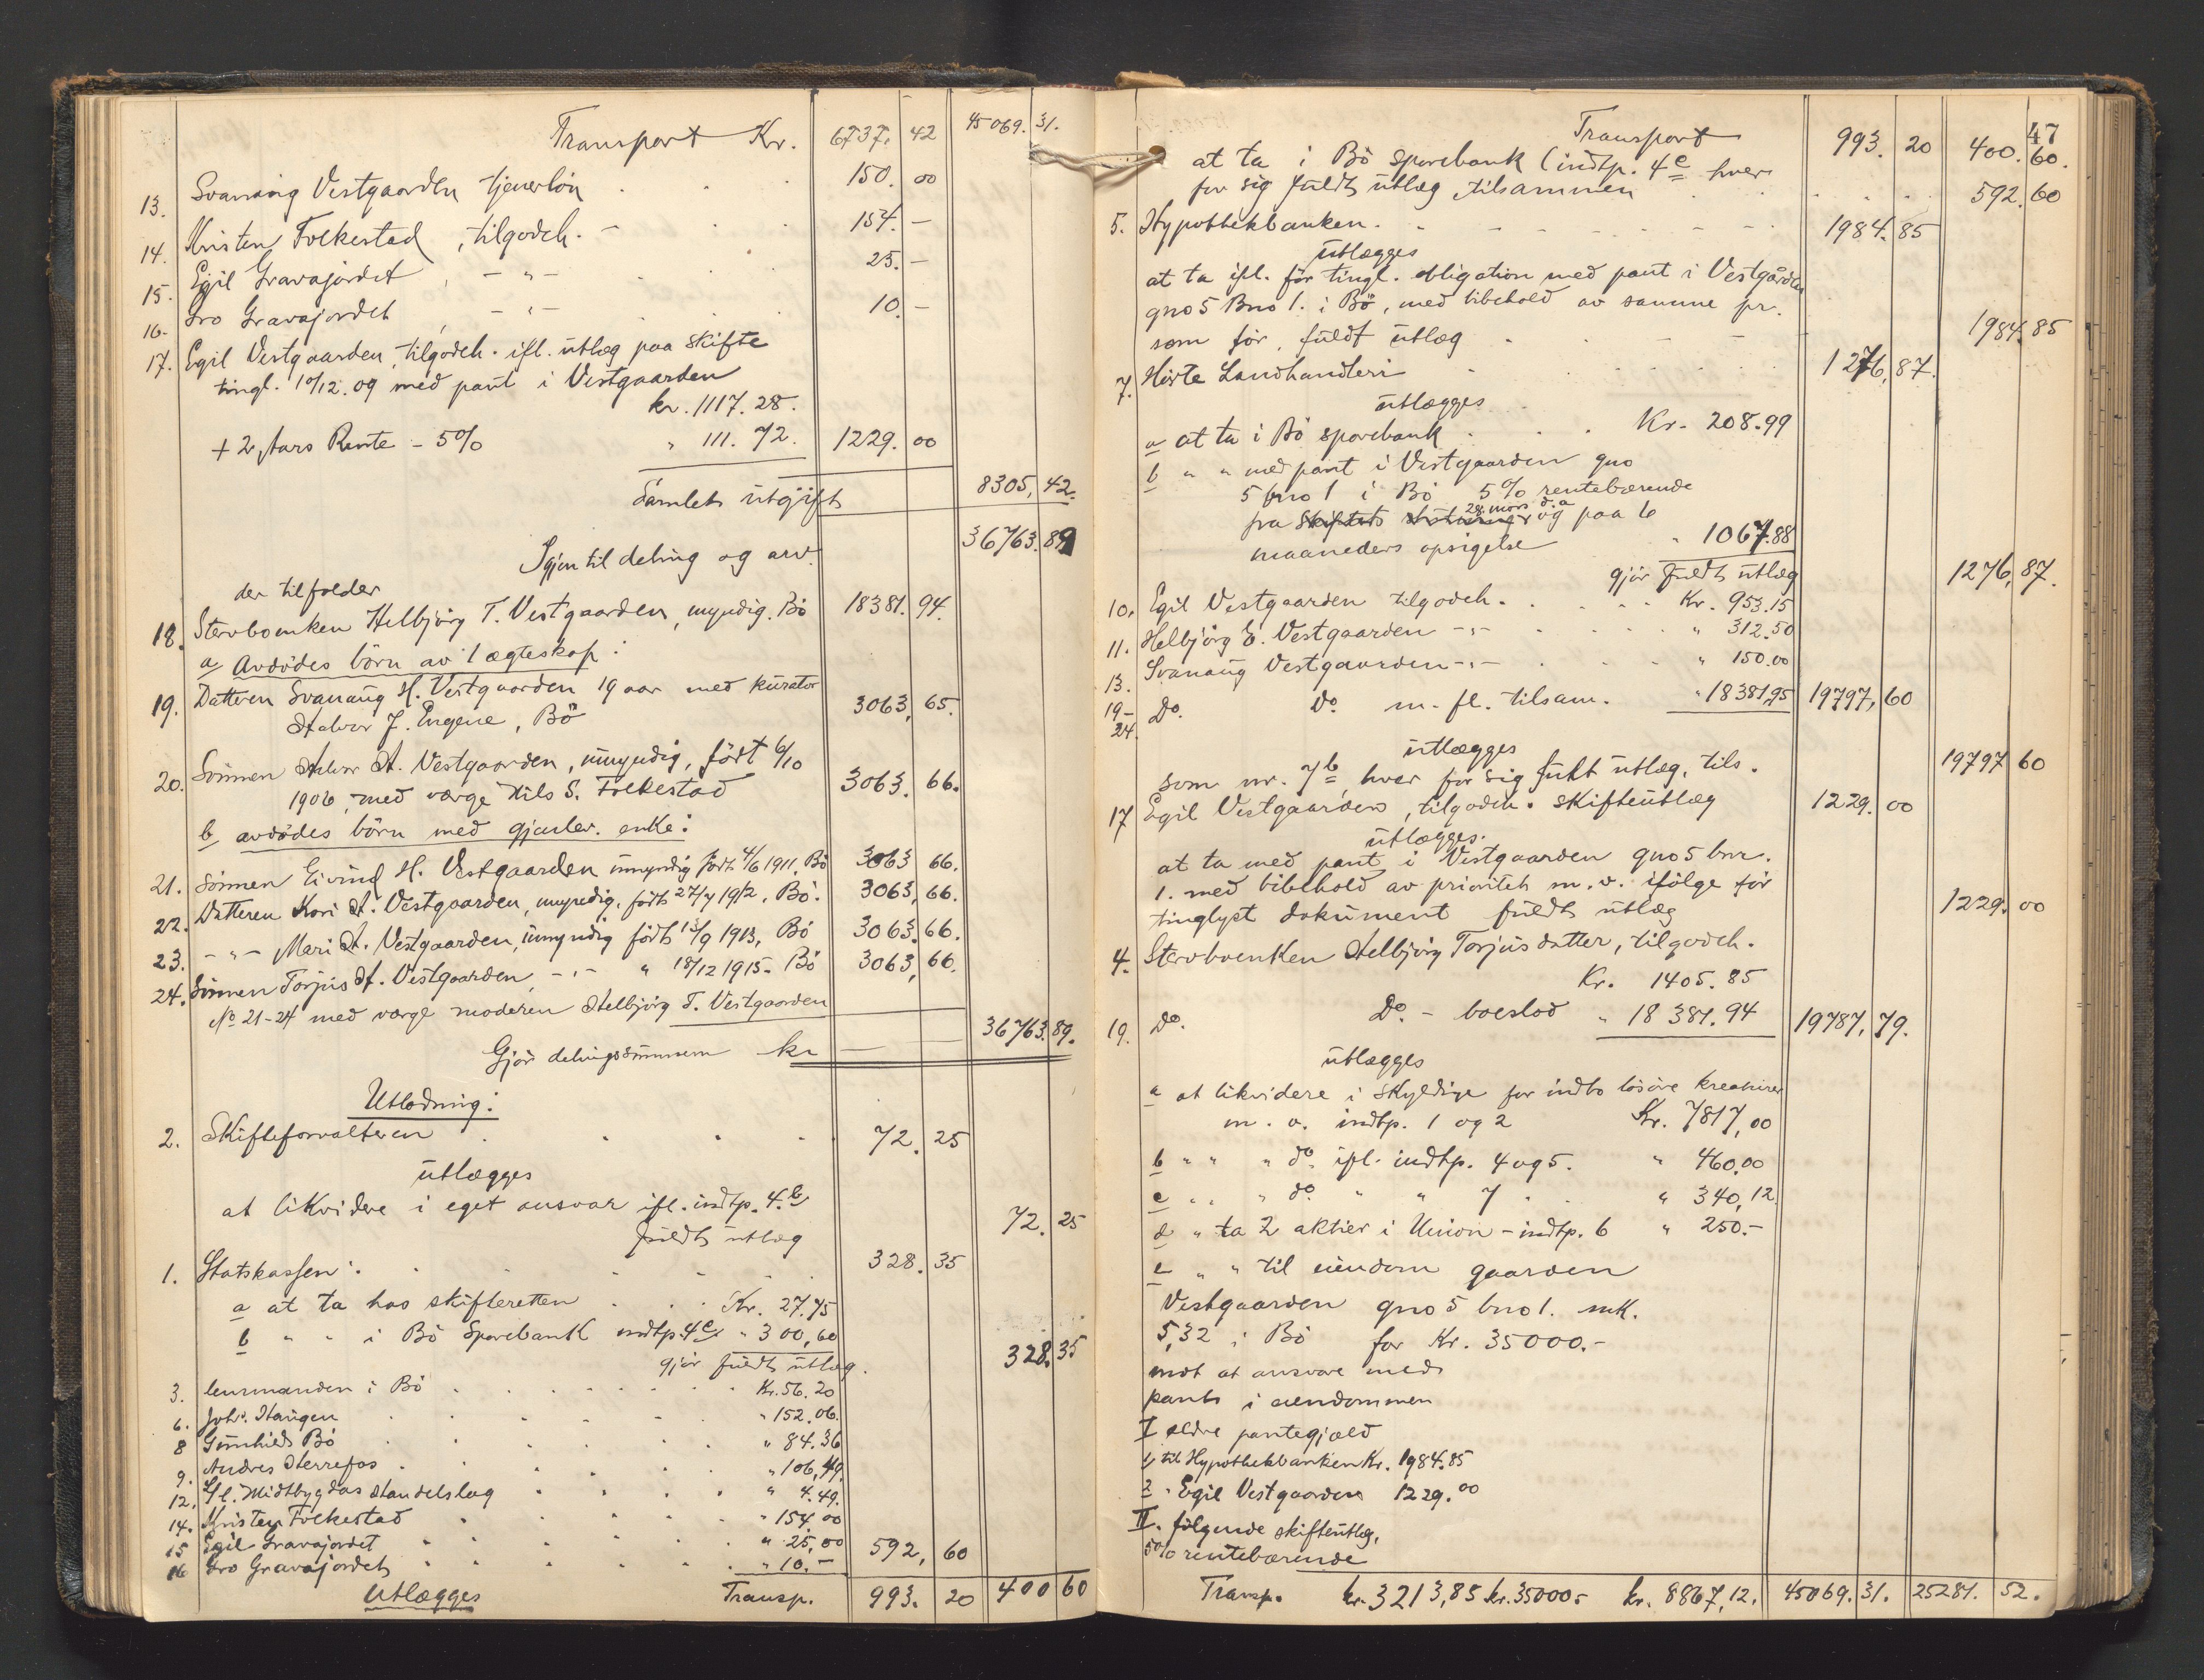 Transport Kr. 6737. 42 45069. 31.
13. Svanaug Vestgaarden tjenerlön . . . 150. 00
14. Kristen Folkestad, tilgodeh. - . . 154. -
15. Egil Gravajordet, - " - . . . 25. -
16. Gro Gravajordet, - " - . . . 10. -
17. Egil Vestgaarden, tilgodeh. ifl. utlæg paa skifte
tingl. 10/12. 09 med pant i Vestgaarden
kr. 1117. 28.
+ 2 Aars Rente - 5% " 111. 72. 1229. 00
Samlet utgift 8305, 42.
Igjen til deling og arv. 36763. 89
der tilfalder
18. Stervboenken Helbjörg T. Vestgaarden, myndig. Bö 18381. 94.
a Avdödes börn av 1 ægteskap:
19. Datteren Svanaug H. Vestgaarden 19 aar med kurator
Halvor J. Eugene, Bö 3063, 65.
20. Sönnen Halvor H. Vestgaarden, umyndig, födt 6/10
1906, med værge Nils S. Folkestad 3063. 66.
b avdödes börn med gjenlev. enke:
21. Sönnen Eivind H. Vestgaarden umyndig födt 4/6 1911. Bö 3063 66.
22. Datteren Kari H. Vestgaarden, umyndig, födt 27/7 1912, Bö. 3063, 66.
23. - " - Mari H. Vestgaarden, umyndig födt 13/9 1913, Bö 3063. 66.
24. Sönnen Torjus H. Vestgaarden, - " - " 18/12 1915 - Bö 3063, 66.
No 21-24 med værge moderen Helbjörg T. Vestgaarden
Gjör delingssummen kr 36763. 89.
Utlodning:
2. Skifteforvalteren . . . . 72. 25
utlægges
at likvidere i eget ansvar ifl. indtp. 4.b
fuldt utlæg 72. 25
1. Statskassen: . . . . 328. 35
a at ta hos skifteretten . . . Kr. 27.75
b " " i Bö Sparebank indtp. 4c " 300,60
gjör fuldt utlæg. 328. 35
3. lensmanden i Bö . . . . . Kr. 56. 20
6. Joh. Haugen . . . . " 152. 06.
8 Gunhild Bö . . . . " 84. 36
9. Andres Herrefos . . . . " 106, 49.
12. Sl. Midtbygdas Handelslag . . . . " 4. 49.
14. Kristen Folkestad . . . . " 154 00
15 Egil Gravajordet . . . . " 25, 00 592, 60
16 Gro Gravajordet . . . . " 10. -
utlægges Transp. 993. 20 400 60
47
Transport 993. 20 400. 60.
at ta i Bö sparebank (indtp. 4c hver
for sig fuldt utlæg tilsammen . . . . 592. 60
5. Hypothekbanken. . . . . 1984. 85
utlægges
at ta ifl. för tingl. obligation med pant i Vestgården
gno 5 Bno 1. i Bö, med bibehold av samme pr.
som för, fuldt utlæg . . . 1984. 85
7. Hörte Landhandleri . . . . 1276, 87.
utlægges
a at ta i Bö sparebank . . . Kr. 208.99
b " " med pant i Vestgaarden gno
5 bno 1 i Bö 5% rentebærende
fra 28. mars d.a. og paa 6
maaneders opsigelse " 1067.88
gjör fuldt utlæg 1276, 87.
10. Egil Vestgaarden tilgodeh. . . . Kr. 953.15
11. Helbjörg E. Vestgaarden - " - . . . " 312.50
13. Svanaug Vestgaarden - " - . . . " 150.00
19-24. Do. Do. m. fl. tilsam. " 18381,95 19797, 60
utlægges
som nr. 7b, hver for sig fuldt utlæg, tils. 19797 60
17 Egil Vestgaarden, tilgodeh. skifteutlæg 1229. 00
utlægges.
at ta med pant i Vestgaarden gno 5 bnr.
1. med bibehold av prioritet m. v. ifölge för
tinglyst dokument fuldt utlæg 1229. 00
4. Stervboenken Helbjörg Torjusdatter, tilgodeh.
Kr. 1405. 85
19. Do. Do. - boeslod " 18 381. 94 19787, 79.
utlægges
a at likvidere i skyldige for indbo lösöre kreaturer
m. v. indtp. 1 og 2 Kr. 7817,00
b " " " do. ifl. indtp. 4 og 5. " 460.00
c " " " do. " " 7 . . " 340,12.
d " ta 2 aktier i Union - indtp. 6 " 250.-
e " " til eiendom gaarden
Vestgaarden gno 5 bno 1. mk.
5,32 i Bö for Kr. 35000.-
mot at ansvare med
pant i eiendommen
I ældre pantegjæld
1, til Hypothekbanken Kr. 1984.85
2 " Egil Vestgaarden 1229.00
II. fölgende skifteutlæg,
5% rentebærende
Transp. kr. 3213,85 kr. 35000.- kr. 8867,12. 45069. 31. 25281. 52.